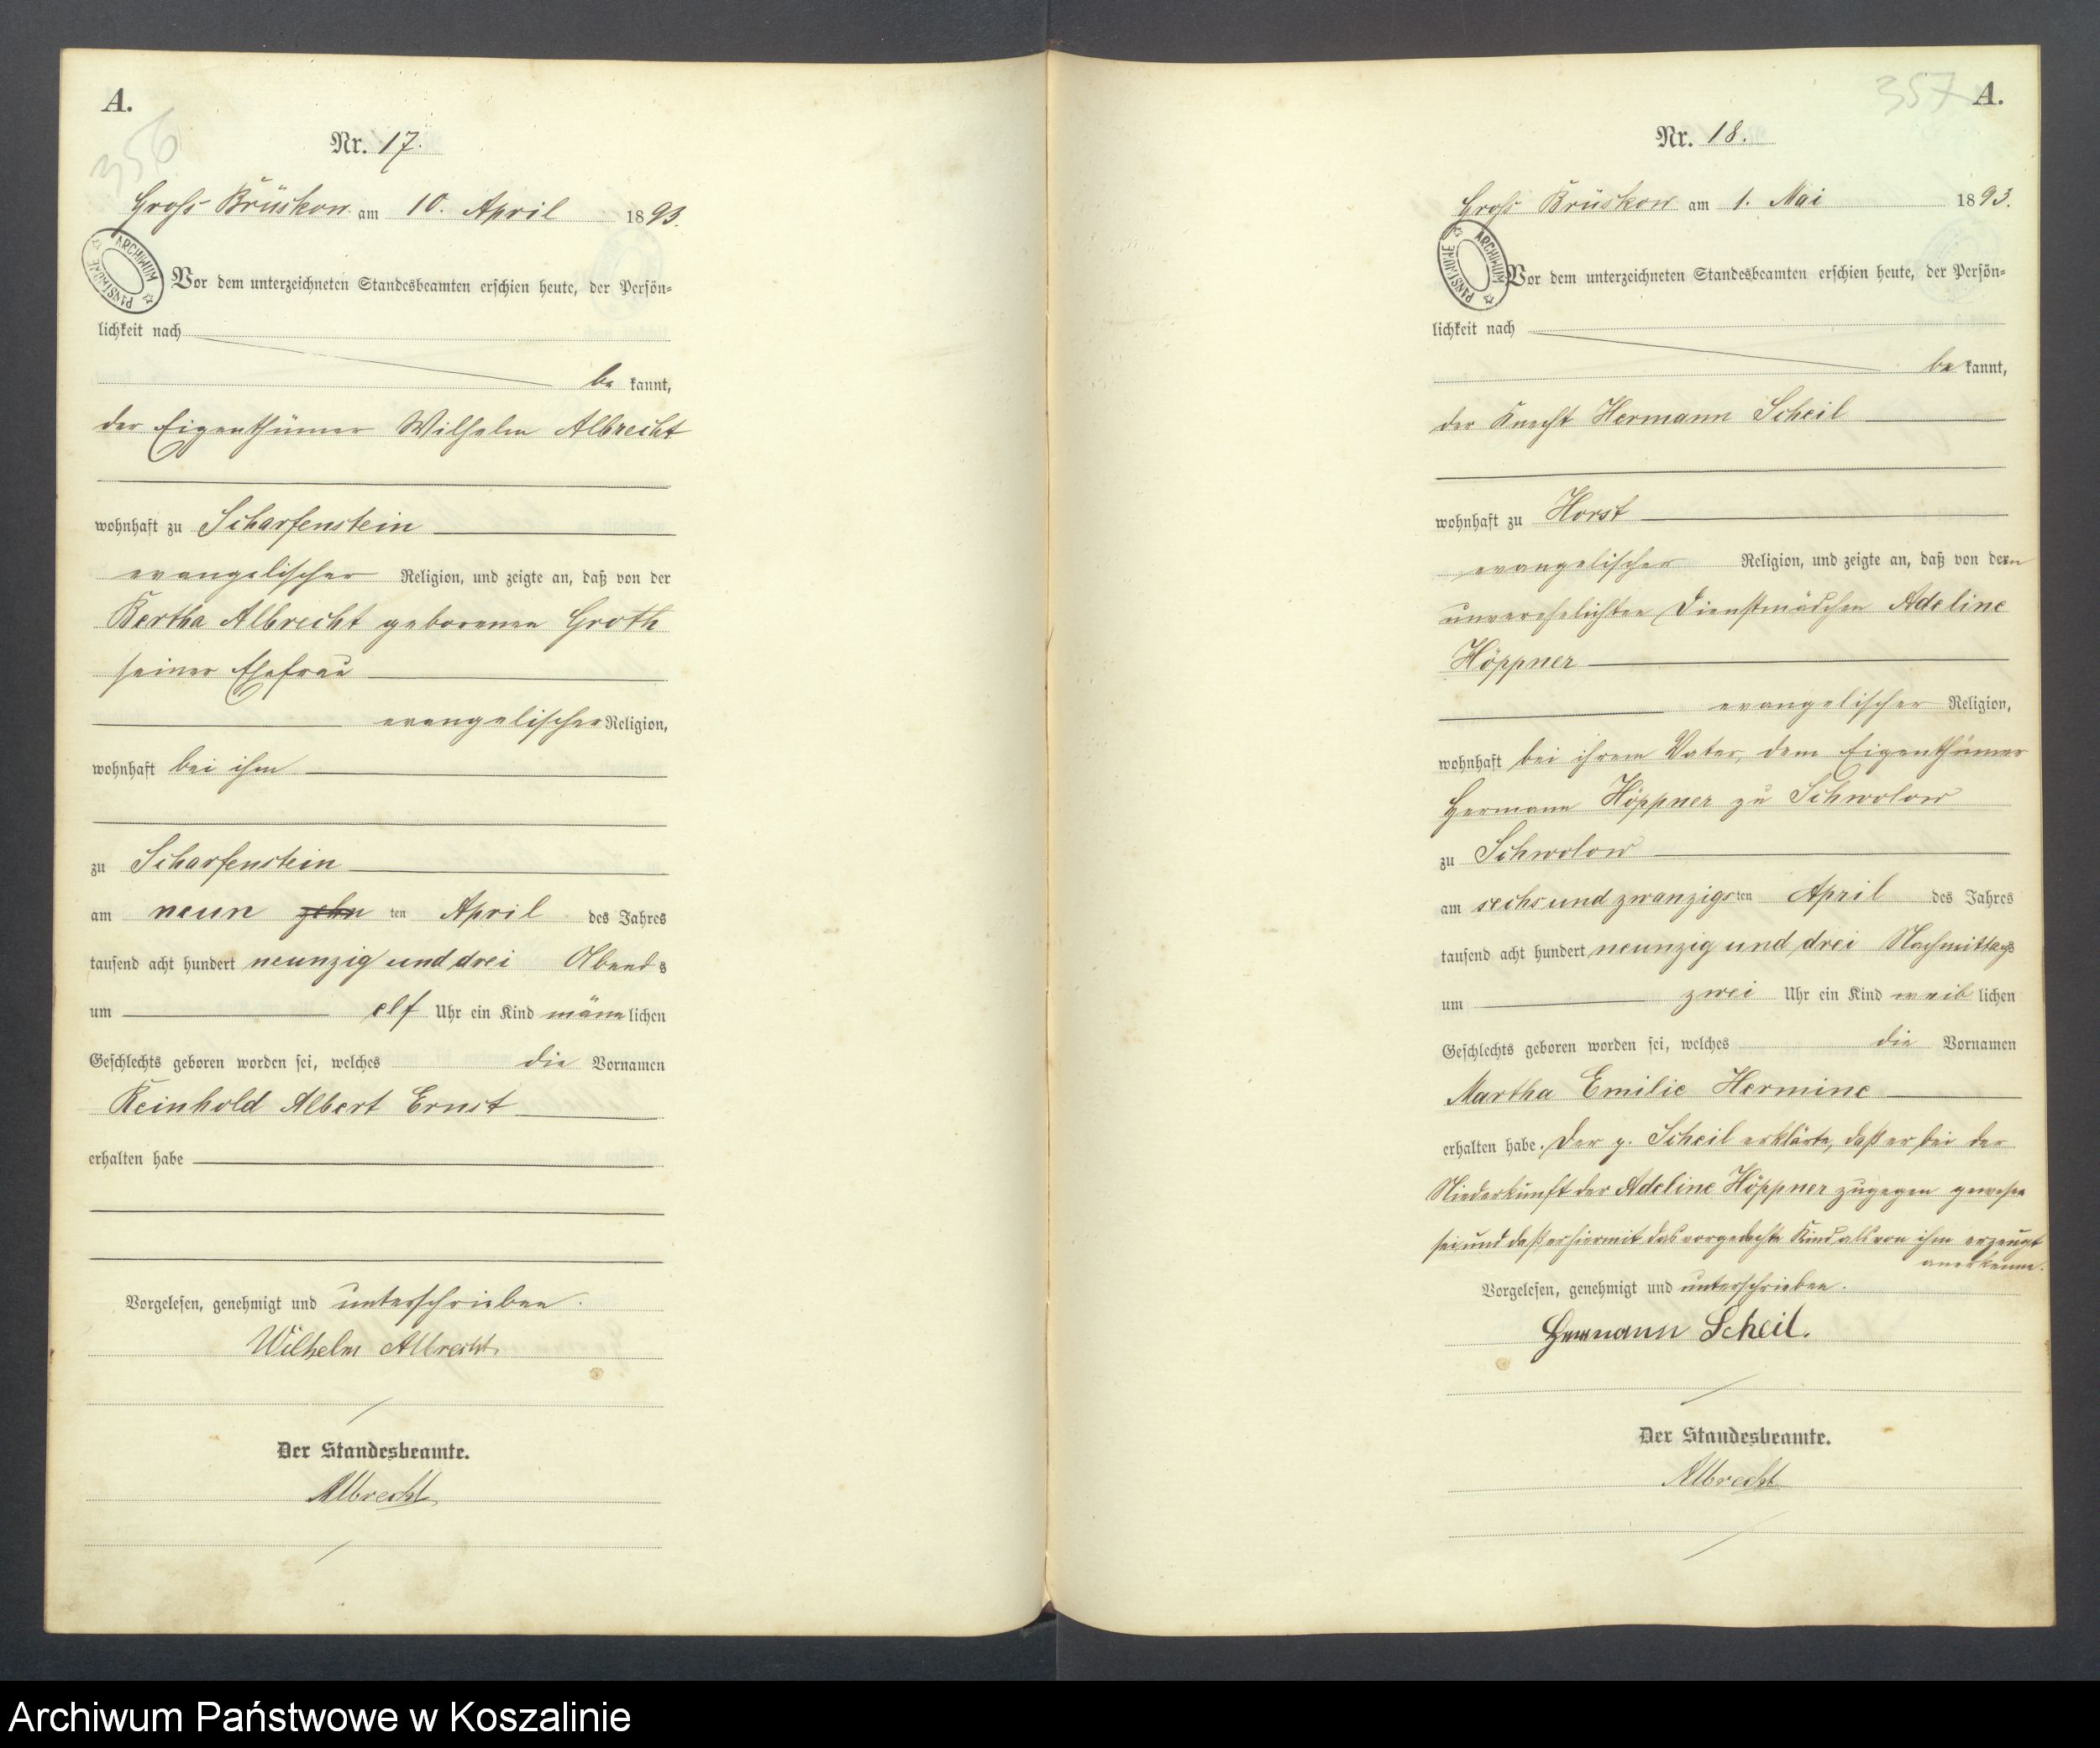 A.
356
Nr. 17.
Groß Brüskow am 10. April 1893.
ARCHIWUM PAŃSTWOWE
Vor dem unterzeichneten Standesbeamten erschien heute, der Persön-
lichkeit nach
be kannt,
der Eigenthümer Wilhelm Albrecht
wohnhaft zu Scharfenstein
evangelischer Religion, und zeigte an, daß von der
Bertha Albrecht geborenen Groth
seiner Ehefrau
evangelischer Religion,
wohnhaft bei ihm
zu Scharfenstein
am neun zehn ten April des Jahres
tausend acht hundert neunzig und drei Abends
um elf Uhr ein Kind männlichen
Geschlechts geboren worden sei, welches die Vornamen
Reinhold Albert Ernst
erhalten habe
Vorgelesen, genehmigt und unterschrieben.
Wilhelm Albrecht
Der Standesbeamte.
Albrecht
357
A.
Nr. 18.
Groß Brüskow am 1. Mai 1893.
ARCHIWUM PAŃSTWOWE
Vor dem unterzeichneten Standesbeamten erschien heute, der Persön-
lichkeit nach
be kannt,
der Knecht Hermann Scheil
wohnhaft zu Horst
evangelischer Religion, und zeigte an, daß von dem
unverehelichten Dienstmädchen Adeline
Höppner
evangelischer Religion,
wohnhaft bei ihrem Vater, dem Eigenthümer
Hermann Höppner zu Schwolow
zu Schwolow
am sechs und zwanzigsten April des Jahres
tausend acht hundert neunzig und drei Nachmittags
um zwei Uhr ein Kind weiblichen
Geschlechts geboren worden sei, welches die Vornamen
Martha Emilie Hermine
erhalten habe. Der p. Scheil erklärte, daß er bei der
Niederkunft der Adeline Höppner zugegen gewesen
sei, und daß er hiermit das vorgedachte Kind als von ihm erzeugt
anerkenne.
Vorgelesen, genehmigt und unterschrieben.
Hermann Scheil.
Der Standesbeamte.
Albrecht
Archiwum Państwowe w Koszalinie